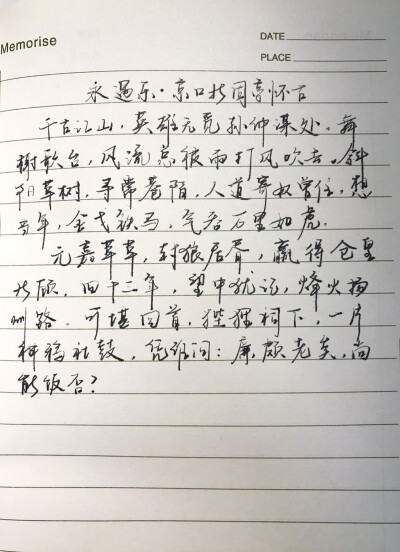 Memorise
DATE
PLACE
永遇乐·京口北固亭怀古
千古江山,英雄无觅孙仲谋处.舞
榭歌台,风流总被雨打风吹去.斜
阳草树,寻常巷陌,人道寄奴曾住,想
当年,金戈铁马,气吞万里如虎.
元嘉草草,封狼居胥,赢得仓皇
北顾.四十三年,望中犹记,烽火扬
州路.可堪回首,狸祠下,一片
神鸦社鼓,凭谁问:廉颇老矣,尚
能饭否?